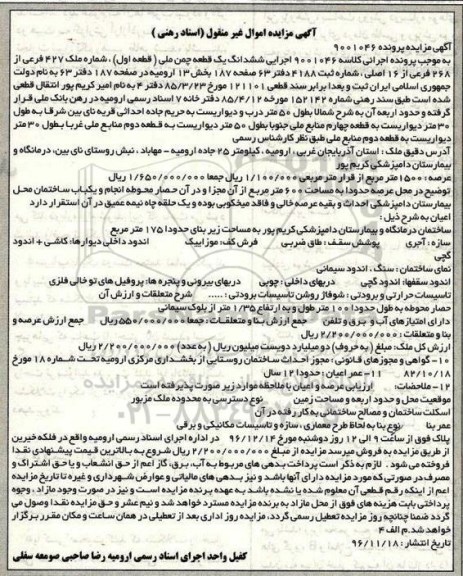 آگهی مزایده اموال غیر منقول (اسناد رهنی)
آگهی مزایده پرونده ۹۰۰۱۰۴۶
به موجب پرونده اجرائی کلاسه ۹۰۰۱۰۴۶ اجرایی ششدانگ یک قطعه چمن ملی (قطعه اول) ، شماره ملک ۴۲۷ فرعی از
۲۶۸ فرعی از ۱۶ اصلی ، شماره ثبت ۴۱۸۸ دفتر ۶۳ صفحه ۱۸۷ بخش ۱۳ ارومیه در صفحه ۱۸۷ دفتر ۶۳ به نام دولت
جمهوری اسلامی ایران ثبت و بعدا برابر سند قطعی ۱۲۱۱۰۱ مورخ ۸۵/۳/۲۳ دفتر ۴ به نام امیر کریم پور انتقال قطعی
شده است طبق سند رهنی شماره ۱۵۲۱۴۲ مورخه ۸۵/۴/۱۲ دفتر خانه ۷ اسناد رسمی ارومیه در رهن بانک ملی قرار
گرفته و حدود اربعه آن به شرح شمالا بطول ۵۰ متر درب و دیواریست به حریم جاده احداثی قریه نای بین شرقا به طول
۳۰ متر دیواریست به قطعه چهارم منابع ملی جنوبا بطول ۵۰ متر دیواریست به قطعه دوم منابع ملی غربا بطول ۳۰ متر
دیواریست به قطعه دوم منابع ملی طبق نظر کارشناس رسمی
آدرس دقیق ملک : استان آذربایجان غربی ، ارومیه ، کیلومتر ۲۵ جاده ارومیه – مهاباد ، نبش روستای نای بین، درمانگاه و
بیمارستان دامپزشکی کریم پور
عرصه : ۱۵۰۰ متر مربع از قرار متر مربعی ۱/۱۰۰/۰۰۰ ریال جمعا ۱/۶۵۰/۰۰۰/۰۰۰ ریال
توضیح در محل عرصه حدودا به مساحت ۶۰۰ متر مربع از آن مجزا و در آن حصار محوطه انجام و یکباب ساختمان محل
بیمارستان دامپزشکی احداث و بقیه عرصه خالی و فاقد میخکوبی بوده و یک حلقه چاه نیمه عمیق در آن استقرار دارد
اعیان به شرح ذیل :
ساختمان درمانگاه و بیمارستان دامپزشکی کریم پور به مساحت زیر بنای حدودا ۱۷۵ متر مربع
سازه : آجری پوشش سقف : طاق ضربی فرش کف: موزاییک اندود داخلی دیوارها: کاشی + اندود
گچی
نمای ساختمان : سنگ ، اندود سیمانی
اندود سقفها: اندود گچی دربهای داخلی : چوبی دربهای بیرونی و پنجره ها : پروفیل های تو خالی فلزی
تاسیسات حرارتی و برودتی : شوفاژ روشن تاسیسات برودتی : ...... شرح متعلقات و ارزش آن
حصار محوطه به طول حدودا ۱۰۰ متر طول و به ارتفاع ۱/۳۵ متر از بلوک سیمانی
دارای امتیازهای آب و برق و تلفن جمع ارزش بنا و متعلقات : جمعا ۵۵۰/۰۰۰/۰۰۰ ریال جمع ارزش عرصه و
بنا و متعلقات : ۲/۲۰۰/۰۰۰/۰۰۰ ریال
ارزش کل ملک: مبلغ (به حروف) دو میلیارد دویست میلیون ریال (به عدد) ۲/۲۰۰/۰۰۰/۰۰۰ ریال
۱۰- گواهی و مجوزهای قانونی : مجوز احداث ساختمان روستایی از بخشداری مرکزی ارومیه تحت شماره ۱۸ مورخ
۸۲/۱۰/۱۸ ۱۱- عمر اعیان : حدودا ۱۲ سال
۱۲- ملاحضات: ارزیابی عرصه و اعیان با ملاحظه موارد زیر صورت پذیرفته است
موقعیت محل و حدود اربعه و مساحت زمین نوع دسترسی به محدوده ملک مزبور
اسکلت ساختمان و مصالح ساختمانی به کار رفته در آن
عمر بنا نوع بنا به لحاظ طرح معماری ، سازه و تاسیسات مکانیکی و برقی
پلاک فوق از ساعت ۹ الی ۱۲ روز دوشنبه مورخ ۹۶/۱۲/۱۴ در اداره اجرای اسناد رسمی ارومیه واقع در فلکه خیرین
از طریق مزایده به فروش میرسد مزایده از مبلغ ۲/۲۰۰/۰۰۰/۰۰۰ ریال شروع به بالاترین قیمت پیشنهادی نقدا
فروخته می شود . لازم به ذکر است پرداخت بدهی های مربوط به آب، برق، گاز اعم از حق انشعاب و یا حق اشتراک و
مصرف در صورتی که مورد مزایده دارای آنها باشد و نیز بدهی های مالیاتی و عوارض شهرداری و غیره تا تاریخ مزایده
اعم از اینکه رقم قطعی آن معلوم شده یا نشده باشد به عهده برنده مزایده است و نیز در صورت وجود مازاد ، وجوه
پرداختی بابت هزینه های فوق از محل مازاد به برنده مزایده مسترد خواهد شد و نیم عشر و حق مزایده نقدا وصول می
گردد ضمنا چنانچه روز مزایده تعطیل رسمی گردد، مزایده روز اداری بعد از تعطیلی در همان ساعت و مکان مقرر برگزار
خواهد شد. م الف ۴
تاریخ انتشار : ۹۶/۱۱/۱۸
کفیل واحد اجرای اسناد رسمی ارومیه رضا صاحبی صومعه سفلی